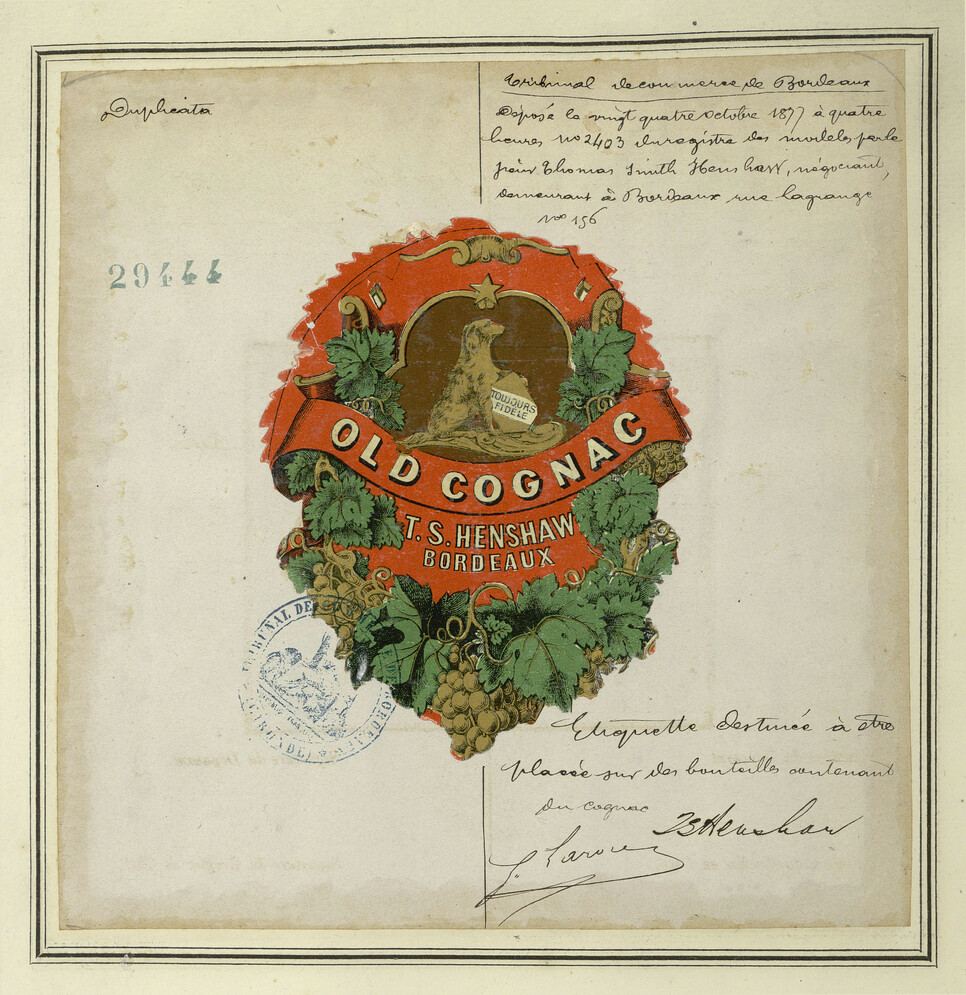 Duplicata
Tribunal de commerce de Bordeaux
Déposé le vingt quatre octobre 1877 à quatre
heures no 2403 du registre des modèles par le
sieur Thomas Smith Henshaw, négociant,
demeurant à Bordeaux rue lagrange
no 156
29444
TOUJOURS
FIDÈLE
OLD COGNAC
T. S. HENSHAW
BORDEAUX
TRIBUNAL DE BORDEAUX
(GIRONDE)
Etiquette destinée à etre
placée sur des bouteilles contenant
du cognac
TS Henshaw